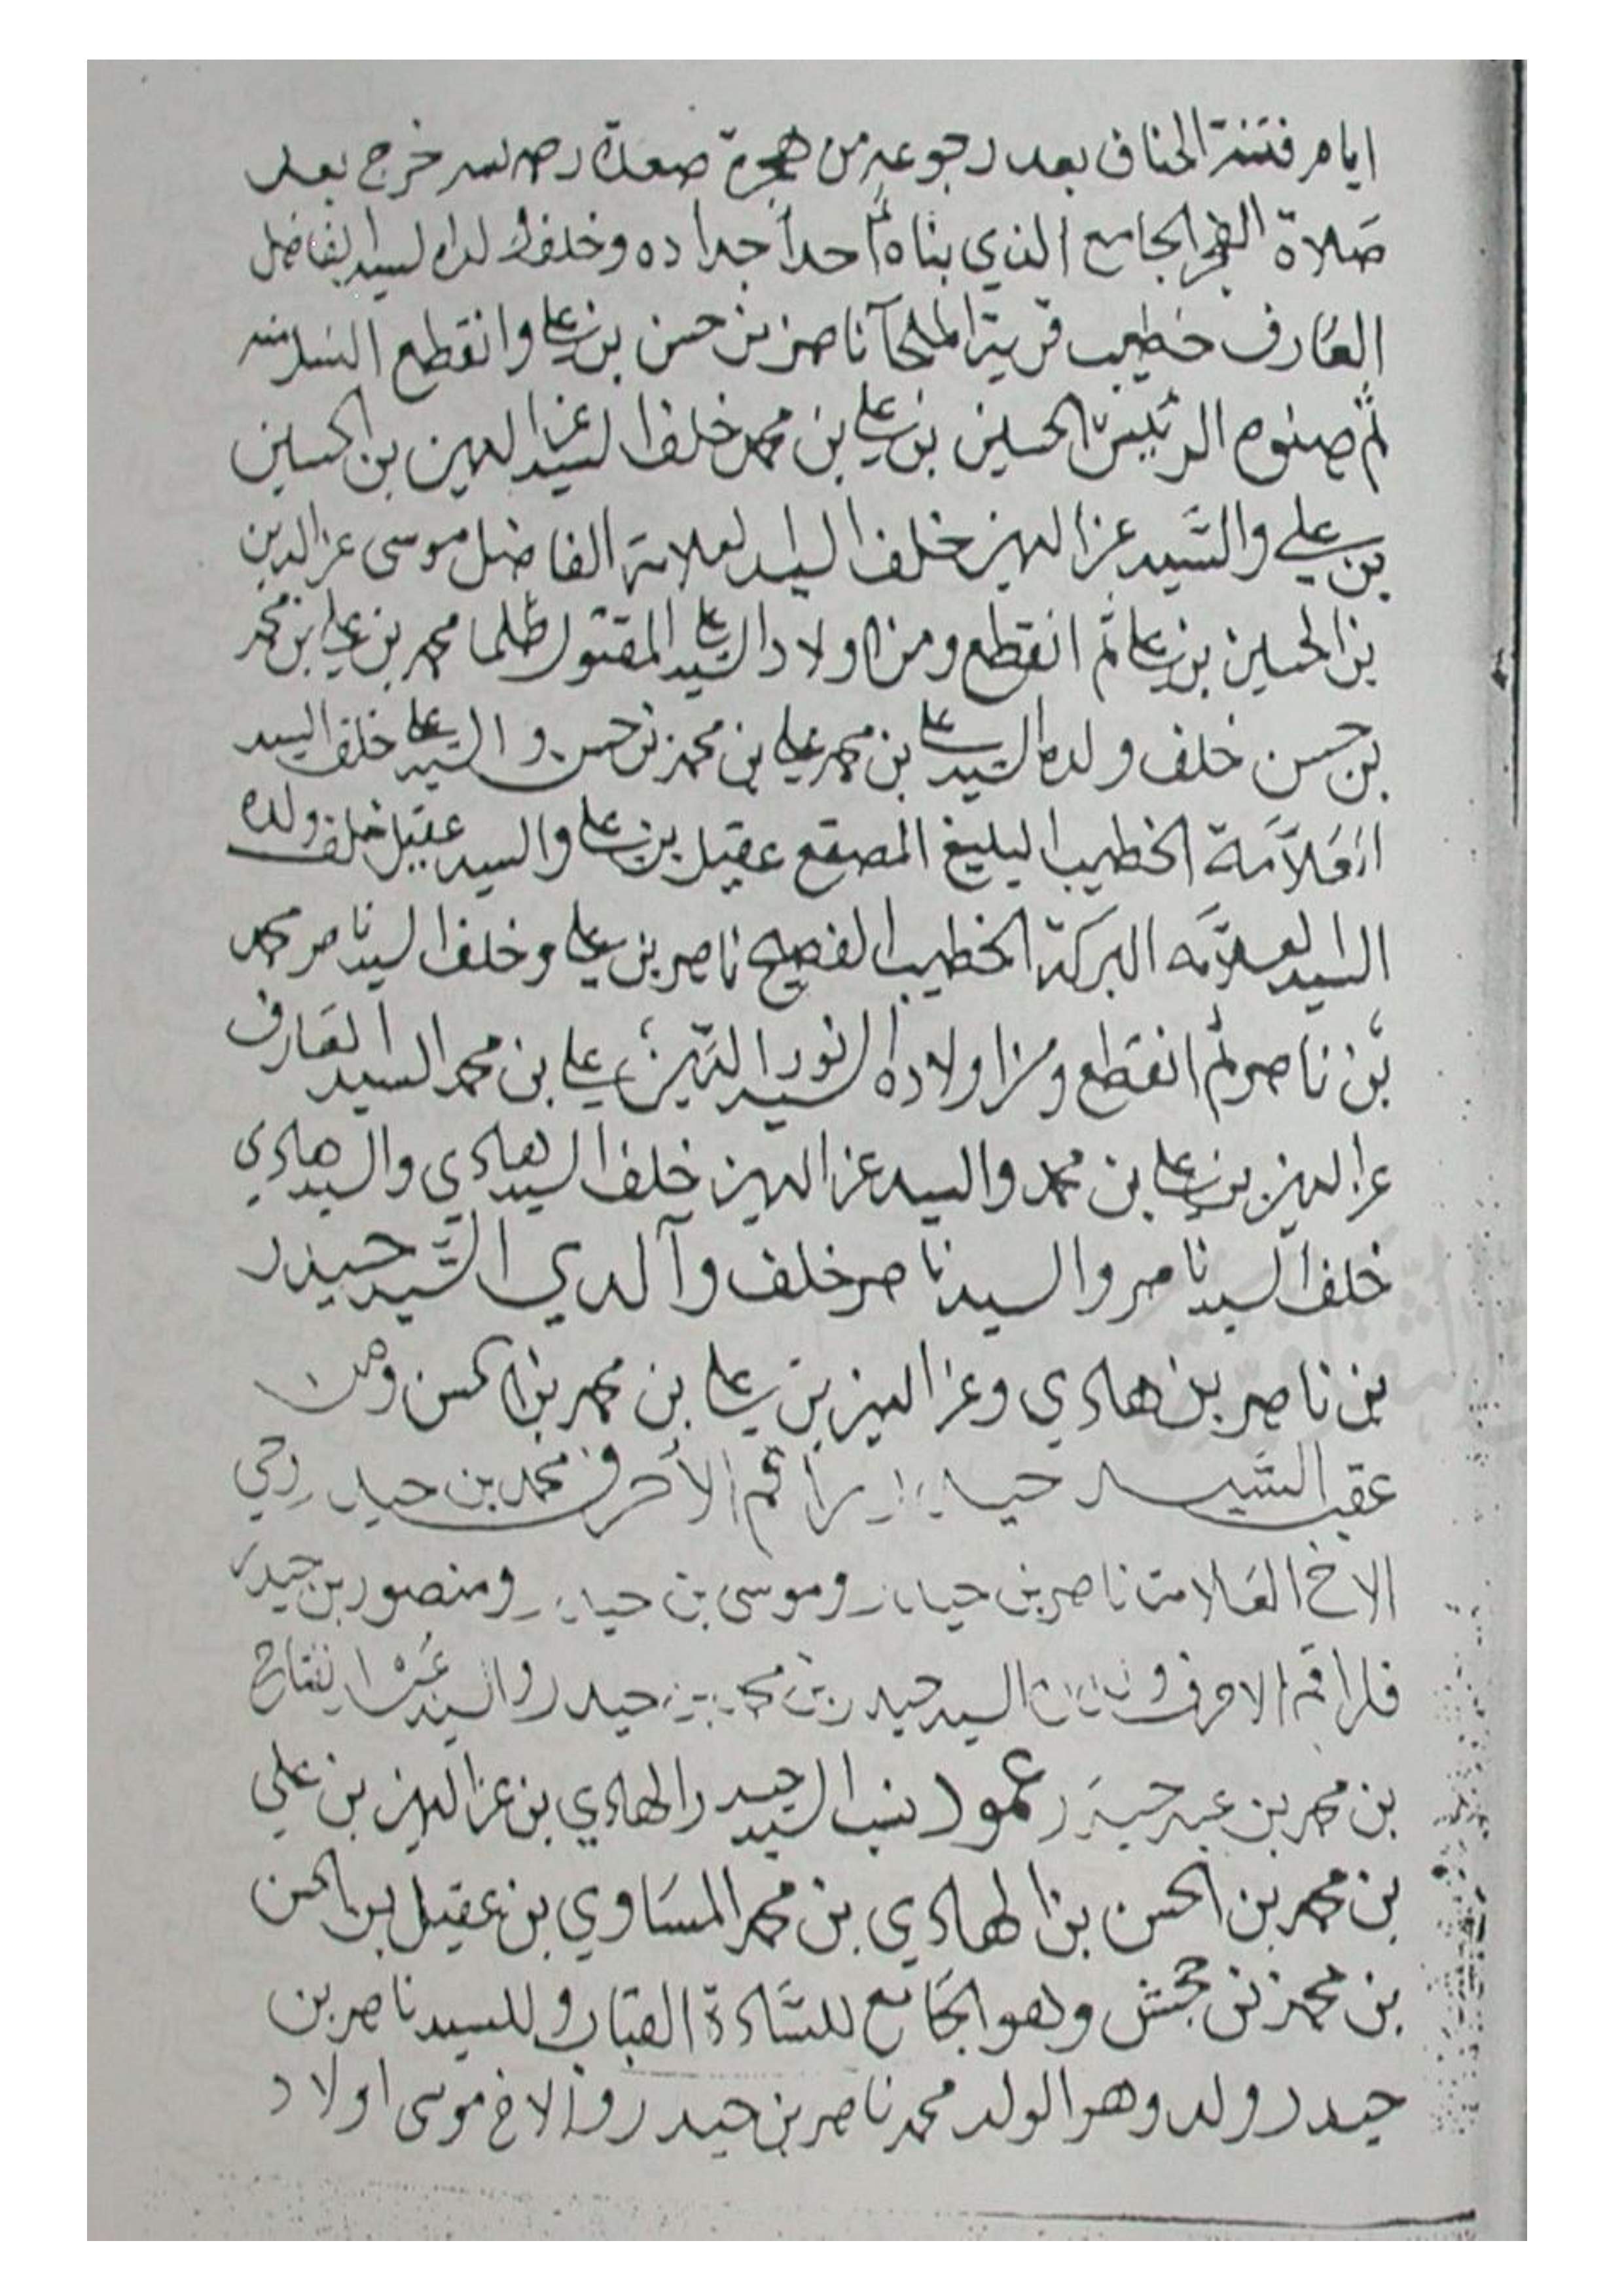 ايام فتنة الخناف بعد رجوعه من هجرة صعدة رحمه الله خرج بعد
صَلاة الفجر الجامع الذي بناه احد اجداده وخلف ولده السيد الفاضل
العَارف خطيب قرية الملحآ ناصر بن حسن بن علي وانقطع النسل منه
ثم صنوه الرئيس الحسين بن علي بن محمد خلف السيد عز الدين بن الحسين
بن علي والسَّيد عز الدين خلف السيد العلامة الفاضل موسى عز الدين
بن الحسين بن علي ثم انقطع ومن اولاد السيد علي المقتول ظلما محمد بن علي بن محمد
بن حسن خلف ولده السيد علي بن محمد علي بن محمد بن حسن والسيد علي خلف السيد
العَلاَّمَة الخطيب البليغ المصقع عقيل بن علي والسيد عقيل خلف ولده
السيد العلاَّمه البركة الخطيب الفصيح ناصر بن علي وخلف السيد ناصر محمد
بن ناصر ثم انقطع ومن اولاده السيد نور الدين علي بن محمد السيد العَارف
عز الدين بن علي بن محمد والسيد عز الدين خلف السيد هادي والسيد هادي
خلف السيد ناصر والسيد ناصر خلف وآلدي السَّيد حيدر
بن ناصر بن هادي وعز الدين بن علي بن محمد بن الحسن ومن
عقب السَّيد حيدر راقم الأحرف محمد بن حيدر
الاخ العَلامة ناصر بن حيدر وموسى بن حيدر ومنصور بن حيدر
فلراقم الاحرف السيد حيدر بن محمد بن حيدر والسيد
بن محمد بن حيدَر عمود نسب السيد حيدر الهادي بن عز الدين بن علي
بن محمد بن الحسن بن الهادي بن محمد المسَاوي بن عقيل بن الحسن
بن محمد بن وهو الجَامع للسَّادة وللسيد ناصر بن
حيدر ولد وهو الولد محمد ناصر بن حيدر والاخ موسى اولاد